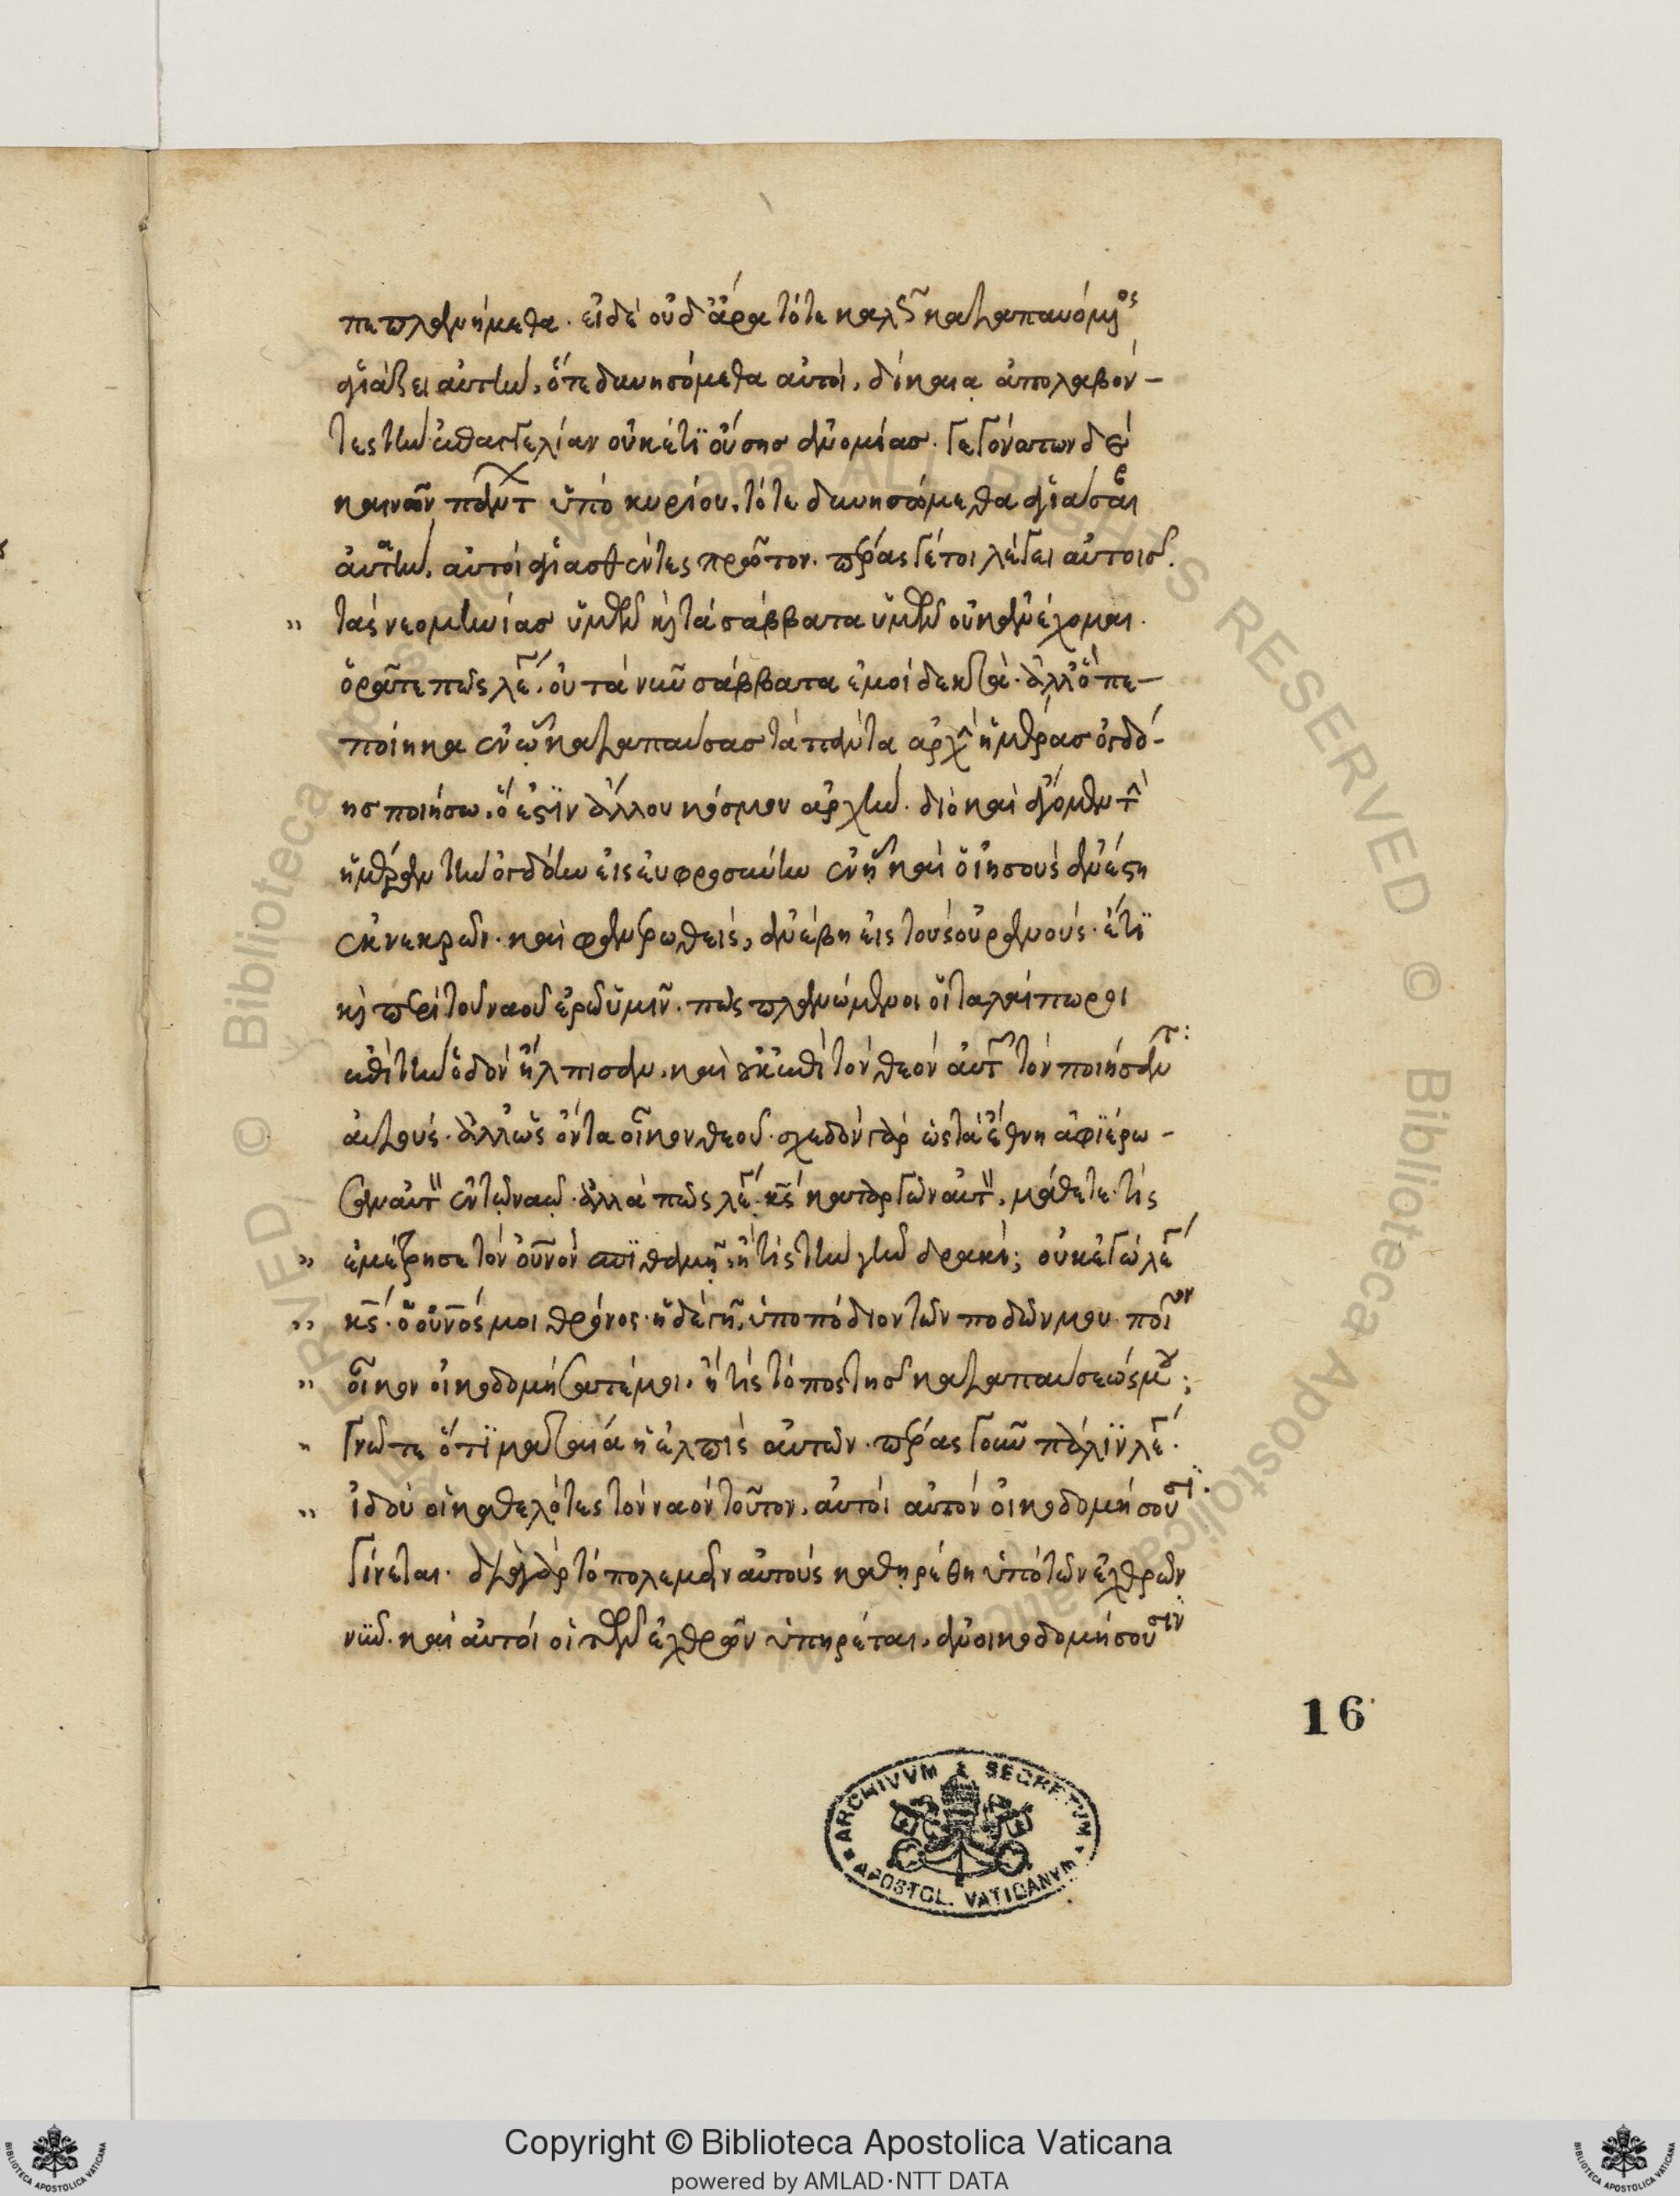 πεπλανήμεθα. εἰ δὲ οὐδ' ἄρα τότε καλῶς καταπαυόμενος
ἁγιάζει αὐτήν, ὅτε δυνησόμεθα αὐτοὶ, δίκαια ἀπολαβόν-
τες τὴν ἐπαγγελίαν οὐκέτι οὔσης ἀνομίας. γεγονότων δὲ
καινῶν πάντων ὑπὸ κυρίου, τότε δυνησόμεθα ἁγιάσαι
αὐτὴν, αὐτοὶ ἁγιασθέντες πρῶτον. πέρας γέ τοι λέγει αὐτοῖς.
" τὰς νεομηνίας ὑμῶν κ τὰ σάββατα ὑμῶν οὐκ ἀνέχομαι.
ὁρᾶτε πῶς λέγει. οὐ τὰ νῦν σάββατα ἐμοὶ δεκτὰ. ἀλλ' ὃ πε-
ποίηκα ἐν ᾧ καταπαύσας τὰ πάντα ἀρχὴν ἡμέρας ὀγδό-
ης ποιήσω. ὅ ἐστιν ἄλλου κόσμου ἀρχήν. διὸ καὶ ἄγομεν τὴν
ἡμέραν τὴν ὀγδόην εἰς εὐφροσύνην ἐν ᾗ καὶ ὁ ἰησοὺς ἀνέστη
ἐκ νεκρῶν. καὶ φανερωθεὶς, ἀνέβη εἰς τοὺς οὐρανούς. ἔτι
κ περὶ τοῦ ναοῦ ἐρῶ ὑμῖν. πῶς πλανώμενοι οἱ ταλαίπωροι
ἐπὶ τὴν ὁδὸν ἤλπισαν, καὶ οὐκ ἐπὶ τὸν θεὸν αὐτῶν τὸν ποιήσαντα:
αὐτοὺς. ἀλλ' ὡς ὄντα οἶκον θεοῦ. σχεδὸν γὰρ ὡς τὰ ἔθνη ἀφιέρω-
σαν αὐτὸν ἐν τῷ ναῷ. ἀλλὰ πῶς λέγει κς καταργῶν αὐτὸν, μάθετε. τίς
" ἐμέτρησε τὸν οὐνὸν σπιθαμῇ. ἢ τίς τὴν γῆν δρακὶ; οὐκ ἐγὼ λέγει
" κς. ὁ οὐνός μοι θρόνος. ἡ δὲ γῆ, ὑποπόδιον τῶν ποδῶν μου. ποῖον
" οἶκον οἰκοδομήσατέ μοι. ἢ τίς τόπος τῆς καταπαύσεώς μου;
" γνῶτε ὅτι ματαία ἡ ἐλπὶς αὐτῶν. πέρας γοῦν πάλιν λέγει.
" ἰδοὺ οἱ καθελότες τὸν ναὸν τοῦτον. αὐτοὶ αὐτὸν οἰκοδομήσουσι.
γίνεται. διὰ γὰρ τὸ πολεμεῖν αὐτοὺς καθηρέθη ὑπὸ τῶν ἐχθρῶν
νῦν. καὶ αὐτοὶ οἱ τῶν ἐχθρῶν ὑπηρέται, ἀνοικοδομήσουσιν
16
ARCHIVVM SECRETVM
APOSTOL. VATICANVM
Copyright © Biblioteca Apostolica Vaticana
powered by AMLAD·NTT DATA